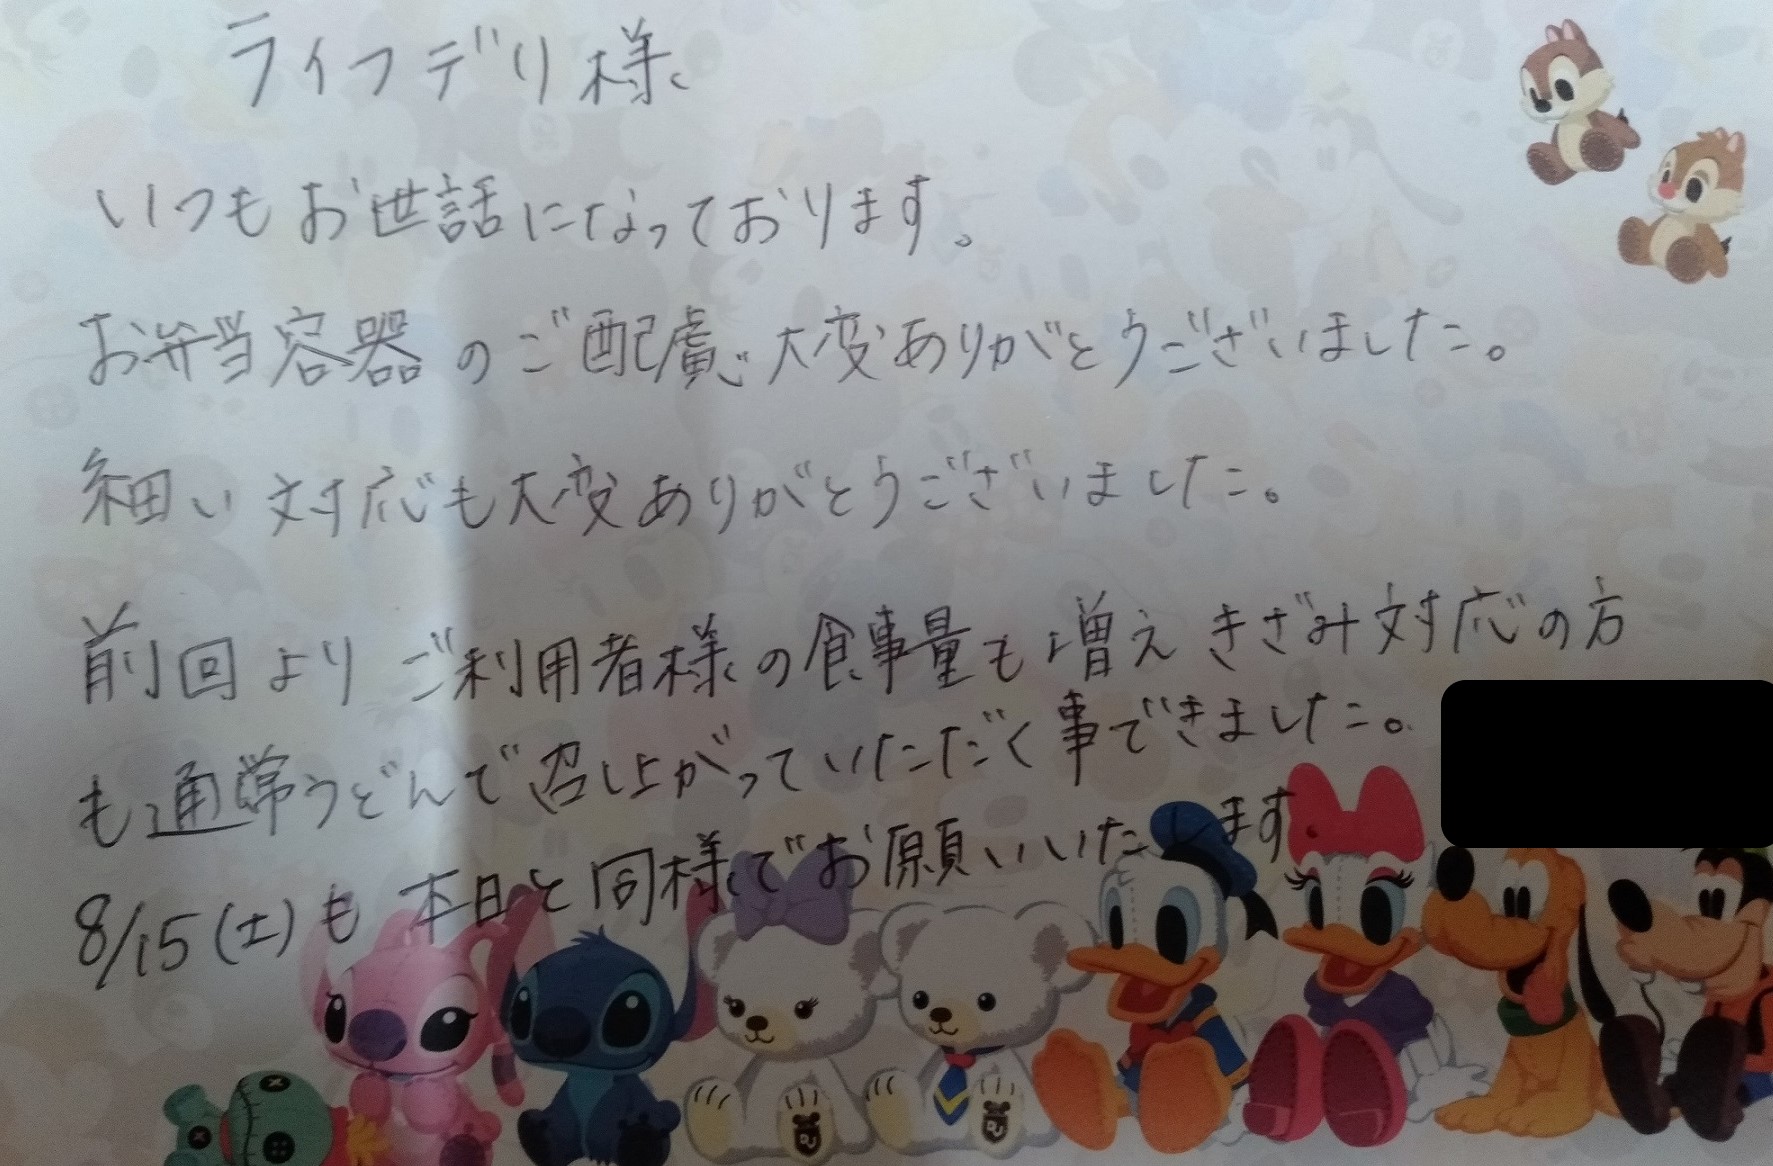 ライフデリ様
いつもお世話になっております。
お弁当容器のご配慮、大変ありがとうございました。
細い対応も大変ありがとうございました。
前回よりご利用者様の食事量も増えきざみ対応の方
も通常うどんで召し上がっていただく事できました。
8/15(土)も本日と同様でお願いいたします